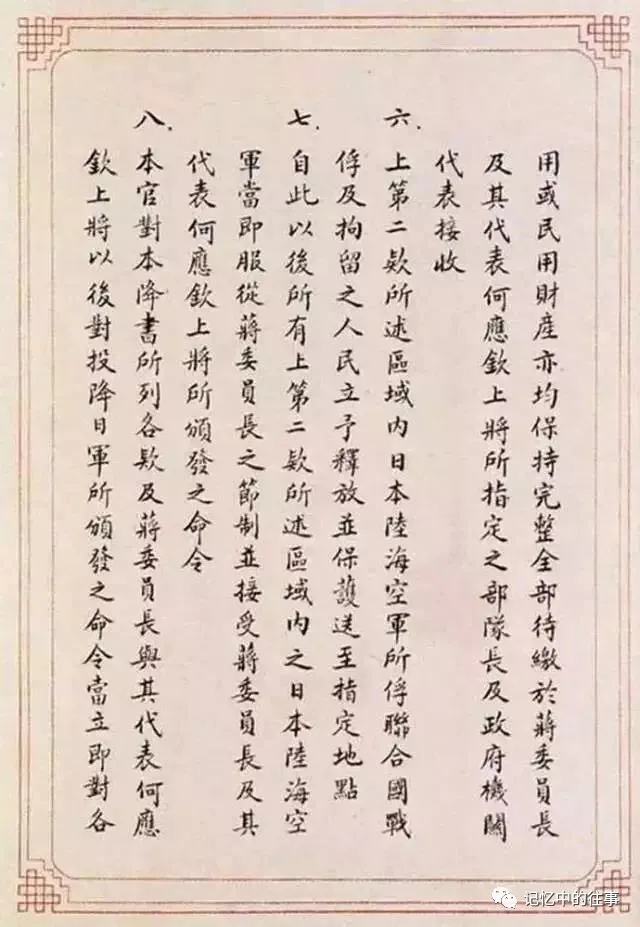 用或民用財產亦均保持完整全部待繳於蔣委員長
及其代表何應欽上將所指定之部隊長及政府機關
代表接收
六.上第二欵所述區域內日本陸海空軍所俘聯合國戰
俘及拘留之人民立予釋放並保護送至指定地點
七.自此以後所有上第二欵所述區域內之日本陸海空
軍當即服從蔣委員長之節制並接受蔣委員長及其
代表何應欽上將所頒發之命令
八.本官對本降書所列各欵及蔣委員長與其代表何應
欽上將以後對投降日軍所頒發之命令當立即對各
记忆中的往事